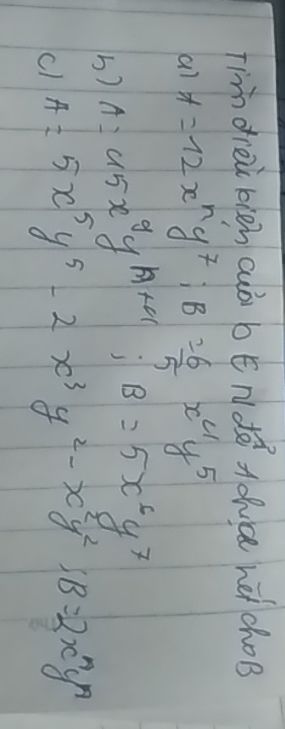 Tìm điều kiện của b ∈ N để A chia hết cho B
a) A = 12xⁿy⁷ ; B = 6/5 x⁴y⁵
b) A = 45x⁹yⁿ⁺⁴ ; B = 5x⁶y⁷
c) A = 5x⁵y⁵ - 2x³y² - x²y² ; B = 2xⁿyⁿ